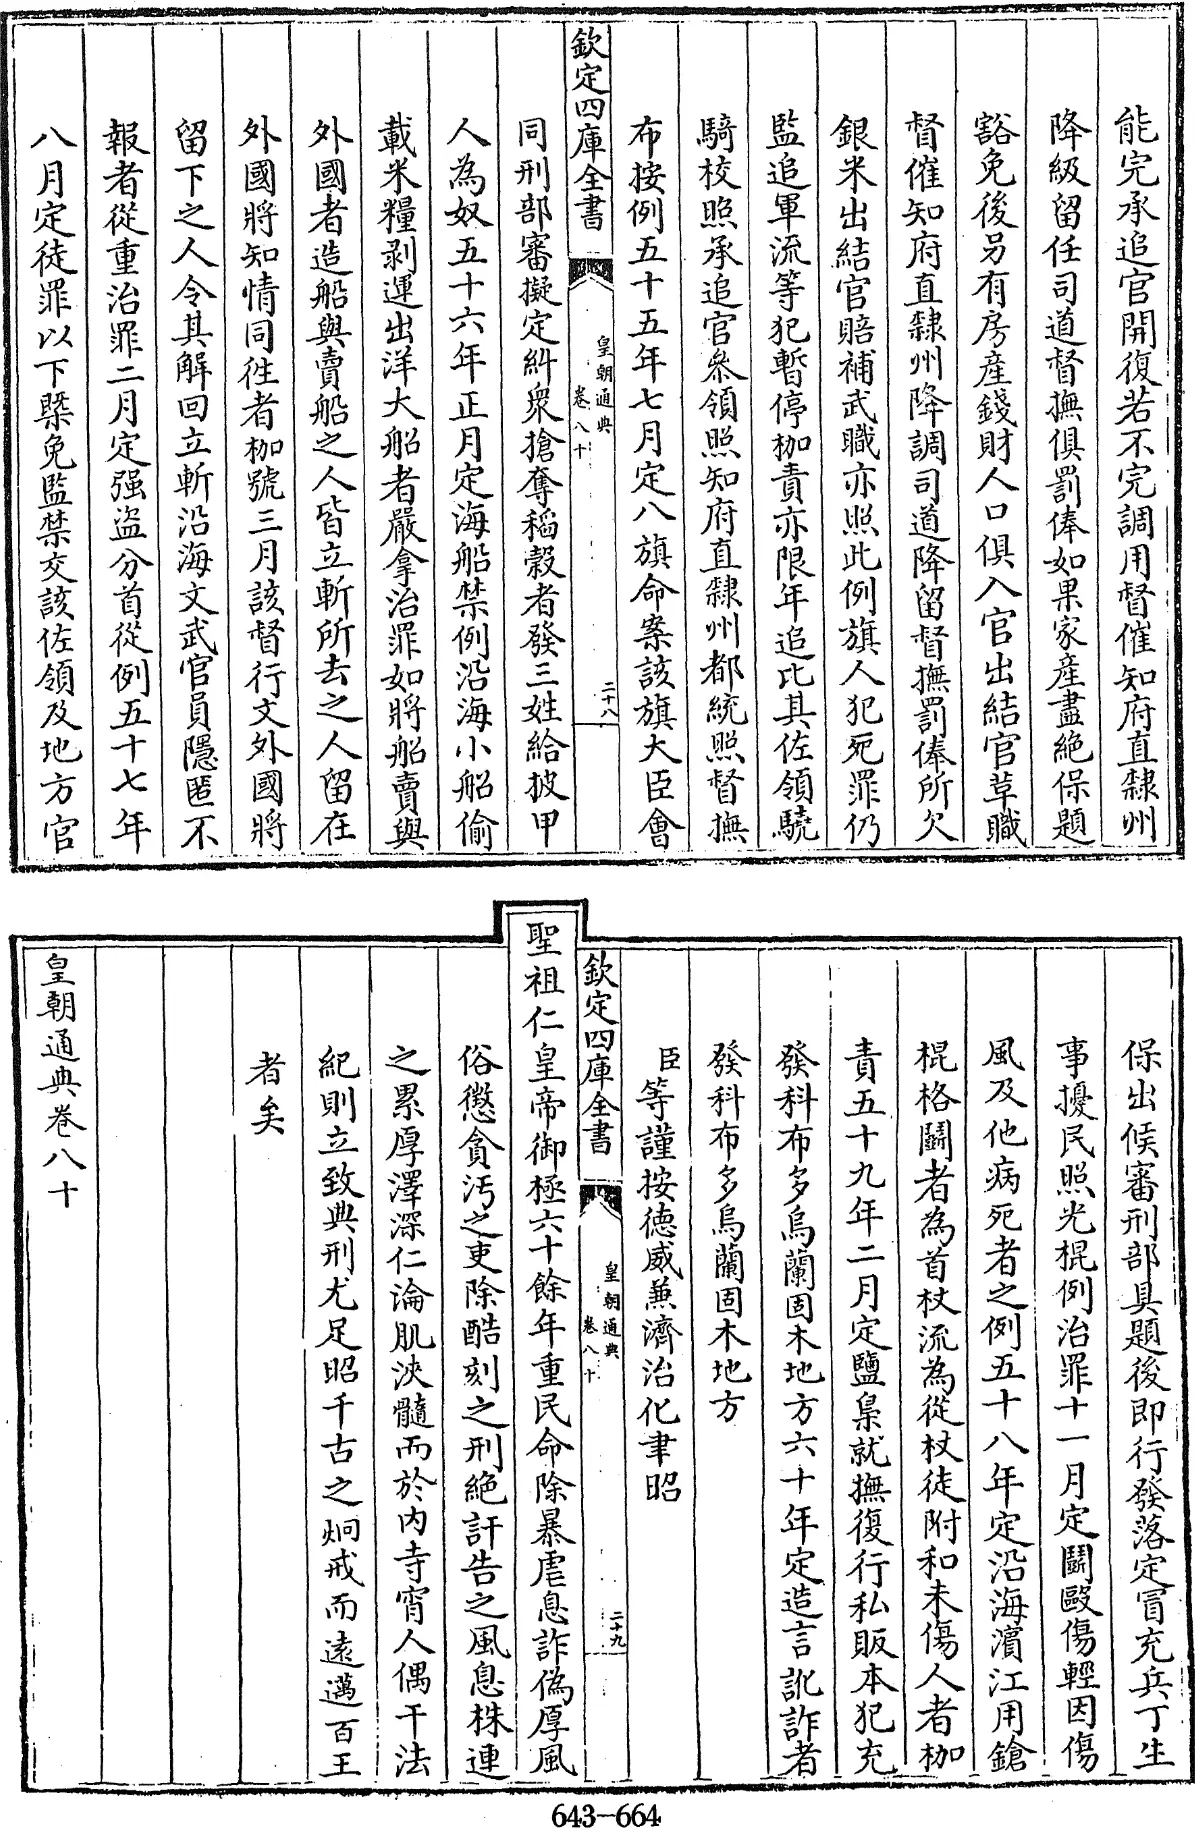 能完承追官開復若不完調用督催知府直隸州
降級留任司道督撫俱罰俸如果家産盡絶保題
豁免後另有房産錢財人口俱入官出結官革職
督催知府直隸州降調司道降留督撫罰俸所欠
銀米出結官賠補武職亦照此例旗人犯死罪仍
監追軍流等犯暫停枷責亦限年追比其佐領驍
騎校照承追官叅領照知府直隸州都統照督撫
布按例五十五年七月定八旗命案該旗大臣會
欽定四庫全書
皇朝通典
卷八十
二十八
同刑部審擬定糾衆搶奪稻穀者發三姓給披甲
人為奴五十六年正月定海船禁例沿海小船偷
載米糧剥運出洋大船者嚴拿治罪如將船賣與
外國者造船與賣船之人皆立斬所去之人留在
外國將知情同徃者枷號三月該督行文外國將
留下之人令其解回立斬沿海文武官員隱匿不
報者從重治罪二月定强盗分首從例五十七年
八月定徒罪以下槩免監禁交該佐領及地方官
保出候審刑部具題後即行發落定冒充兵丁生
事擾民照光棍例治罪十一月定鬬毆傷輕因傷
風及他病死者之例五十八年定沿海濱江用鎗
棍格鬬者為首杖流為從杖徒附和未傷人者枷
責五十九年二月定鹽梟就撫復行私販本犯充
發科布多烏蘭固木地方六十年定造言訛詐者
發科布多烏蘭固木地方
臣等謹按德威兼濟治化聿昭
欽定四庫全書
皇朝通典
卷八十
二十九
聖祖仁皇帝御極六十餘年重民命除暴虐息詐偽厚風
俗懲貪汚之吏除酷刻之刑絶訐告之風息株連
之累厚澤深仁淪肌浹髓而於内寺宵人偶干法
紀則立致典刑尤足昭千古之炯戒而遠邁百王
者矣
皇朝通典卷八十
643-664